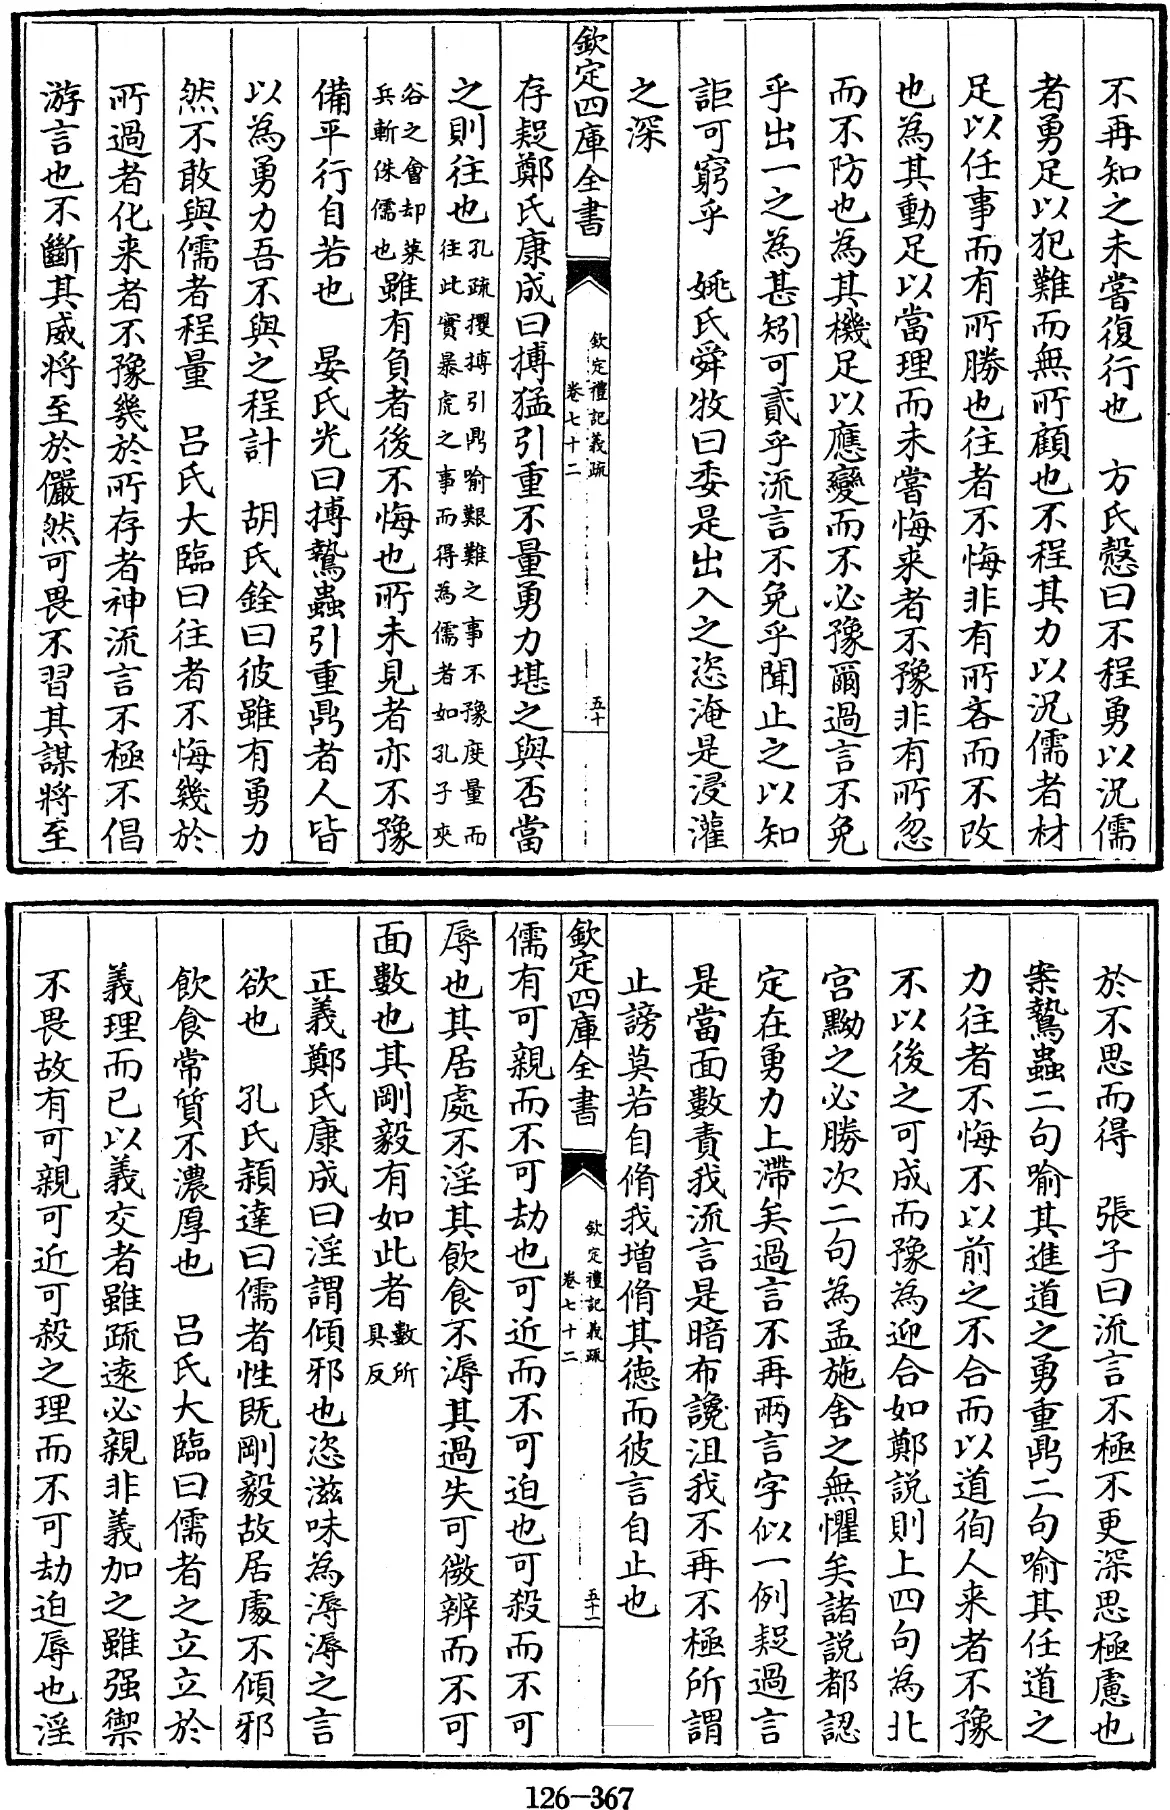 不再知之未嘗復行也　方氏慤曰不程勇以況儒
者勇足以犯難而無所顧也不程其力以況儒者材
足以任事而有所勝也往者不悔非有所吝而不改
也為其動足以當理而未嘗悔来者不豫非有所忽
而不防也為其機足以應變而不必豫爾過言不免
乎出一之為甚矧可貳乎流言不免乎聞止之以知
詎可窮乎　姚氏舜牧曰委是出入之恣淹是浸灌
之深
欽定四庫全書
欽定禮記義疏
卷七十二
五十
存疑鄭氏康成曰搏猛引重不量勇力堪之與否當
之則往也孔疏攫搏引鼎喻艱難之事不豫度量而往此實暴虎之事而得為儒者如孔子夾
谷之會却萊兵斬侏儒也雖有負者後不悔也所未見者亦不豫
備平行自若也　晏氏光曰搏鷙蟲引重鼎者人皆
以為勇力吾不與之程計　胡氏銓曰彼雖有勇力
然不敢與儒者程量　呂氏大臨曰往者不悔幾於
所過者化来者不豫幾於所存者神流言不極不倡
游言也不斷其威将至於儼然可畏不習其謀將至
於不思而得　張子曰流言不極不更深思極慮也
案鷙蟲二句喻其進道之勇重鼎二句喻其任道之
力往者不悔不以前之不合而以道徇人来者不豫
不以後之可成而豫為迎合如鄭說則上四句為北
宮黝之必勝次二句為孟施舍之無懼矣諸説都認
定在勇力上滯矣過言不再兩言字似一例疑過言
是當面數責我流言是暗布讒沮我不再不極所謂
止謗莫若自脩我增脩其德而彼言自止也
欽定四庫全書
欽定禮記義疏
卷七十二
五十一
儒有可親而不可劫也可近而不可迫也可殺而不可
辱也其居處不淫其飲食不溽其過失可微辨而不可
面數也其剛毅有如此者數所具反
正義鄭氏康成曰淫謂傾邪也恣滋味為溽溽之言
欲也　孔氏穎達曰儒者性既剛毅故居處不傾邪
飲食常質不濃厚也　呂氏大臨曰儒者之立立於
義理而已以義交者雖疏遠必親非義加之雖强禦
不畏故有可親可近可殺之理而不可劫迫辱也淫
126-367